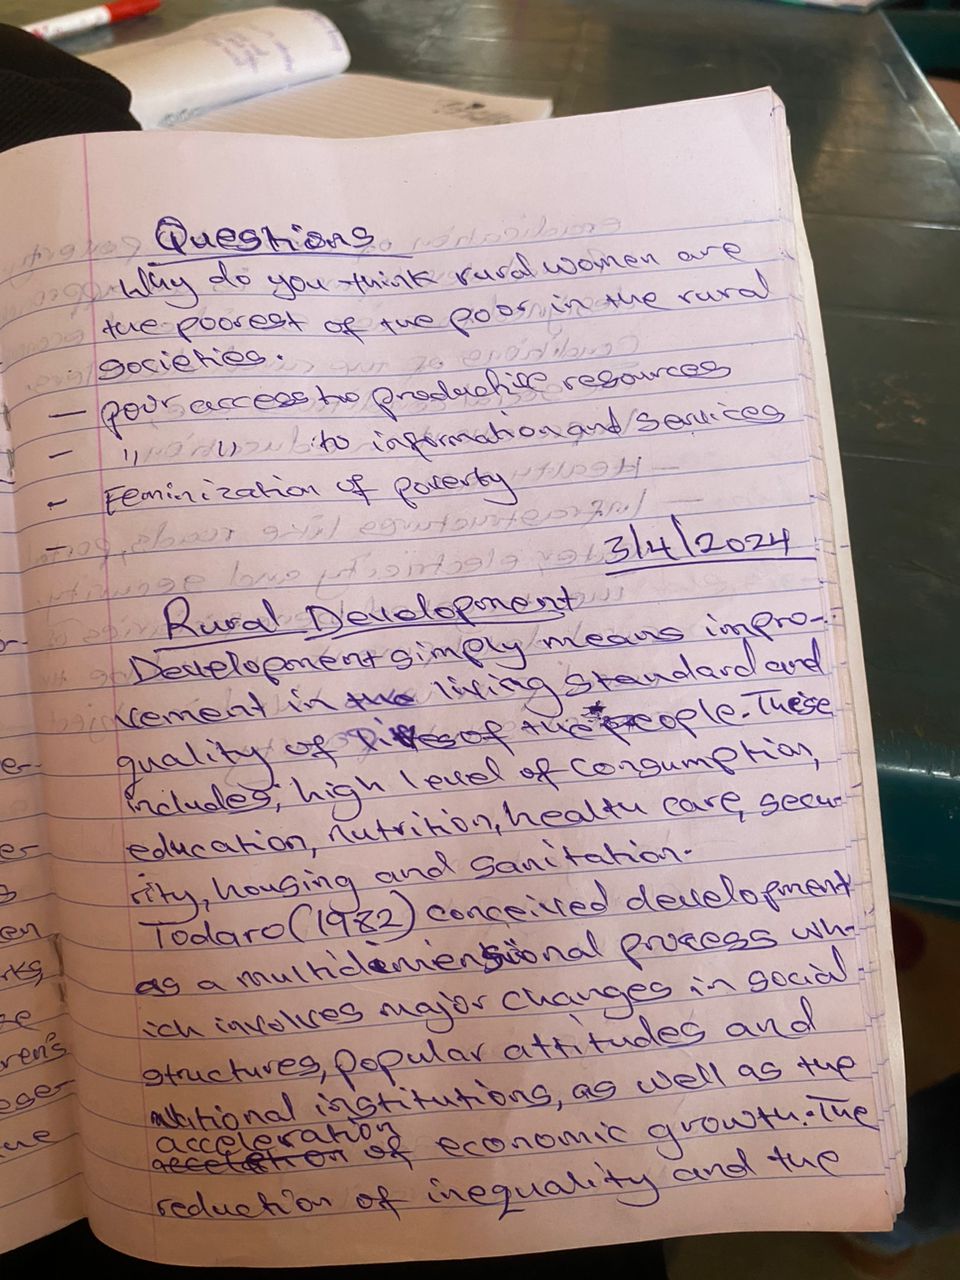 Questions
Why do you think rural women are
the poorest of the poor in the rural
societies.
— poor access to productive resources
— " " to information and services
- Feminization of poverty
-
3/4/2024
Rural Development
Development simply means impro-
vement in the living standard and
quality of lives of the people. These
includes; high level of consumption,
education, nutrition, health care, secu-
rity, housing and sanitation.
Todaro (1982) conceived development
as a multidimensional process wh-
ich involves major changes in social
structures, popular attitudes and
national institutions, as well as the
acceleration
of economic growth. The
reduction of inequality and the